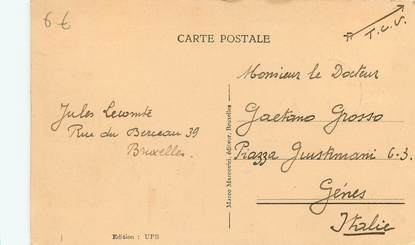 6 €
T.C.V.
CARTE POSTALE
Monsieur le Docteur
Gaetano Grosso
Piazza Giustiniani 6-3.
Gênes
Italie
Jules Lecomte
Rue du Berceau 39
Bruxelles.
Marco Marcovici, éditeur, Bruxelles
Edition : UPB